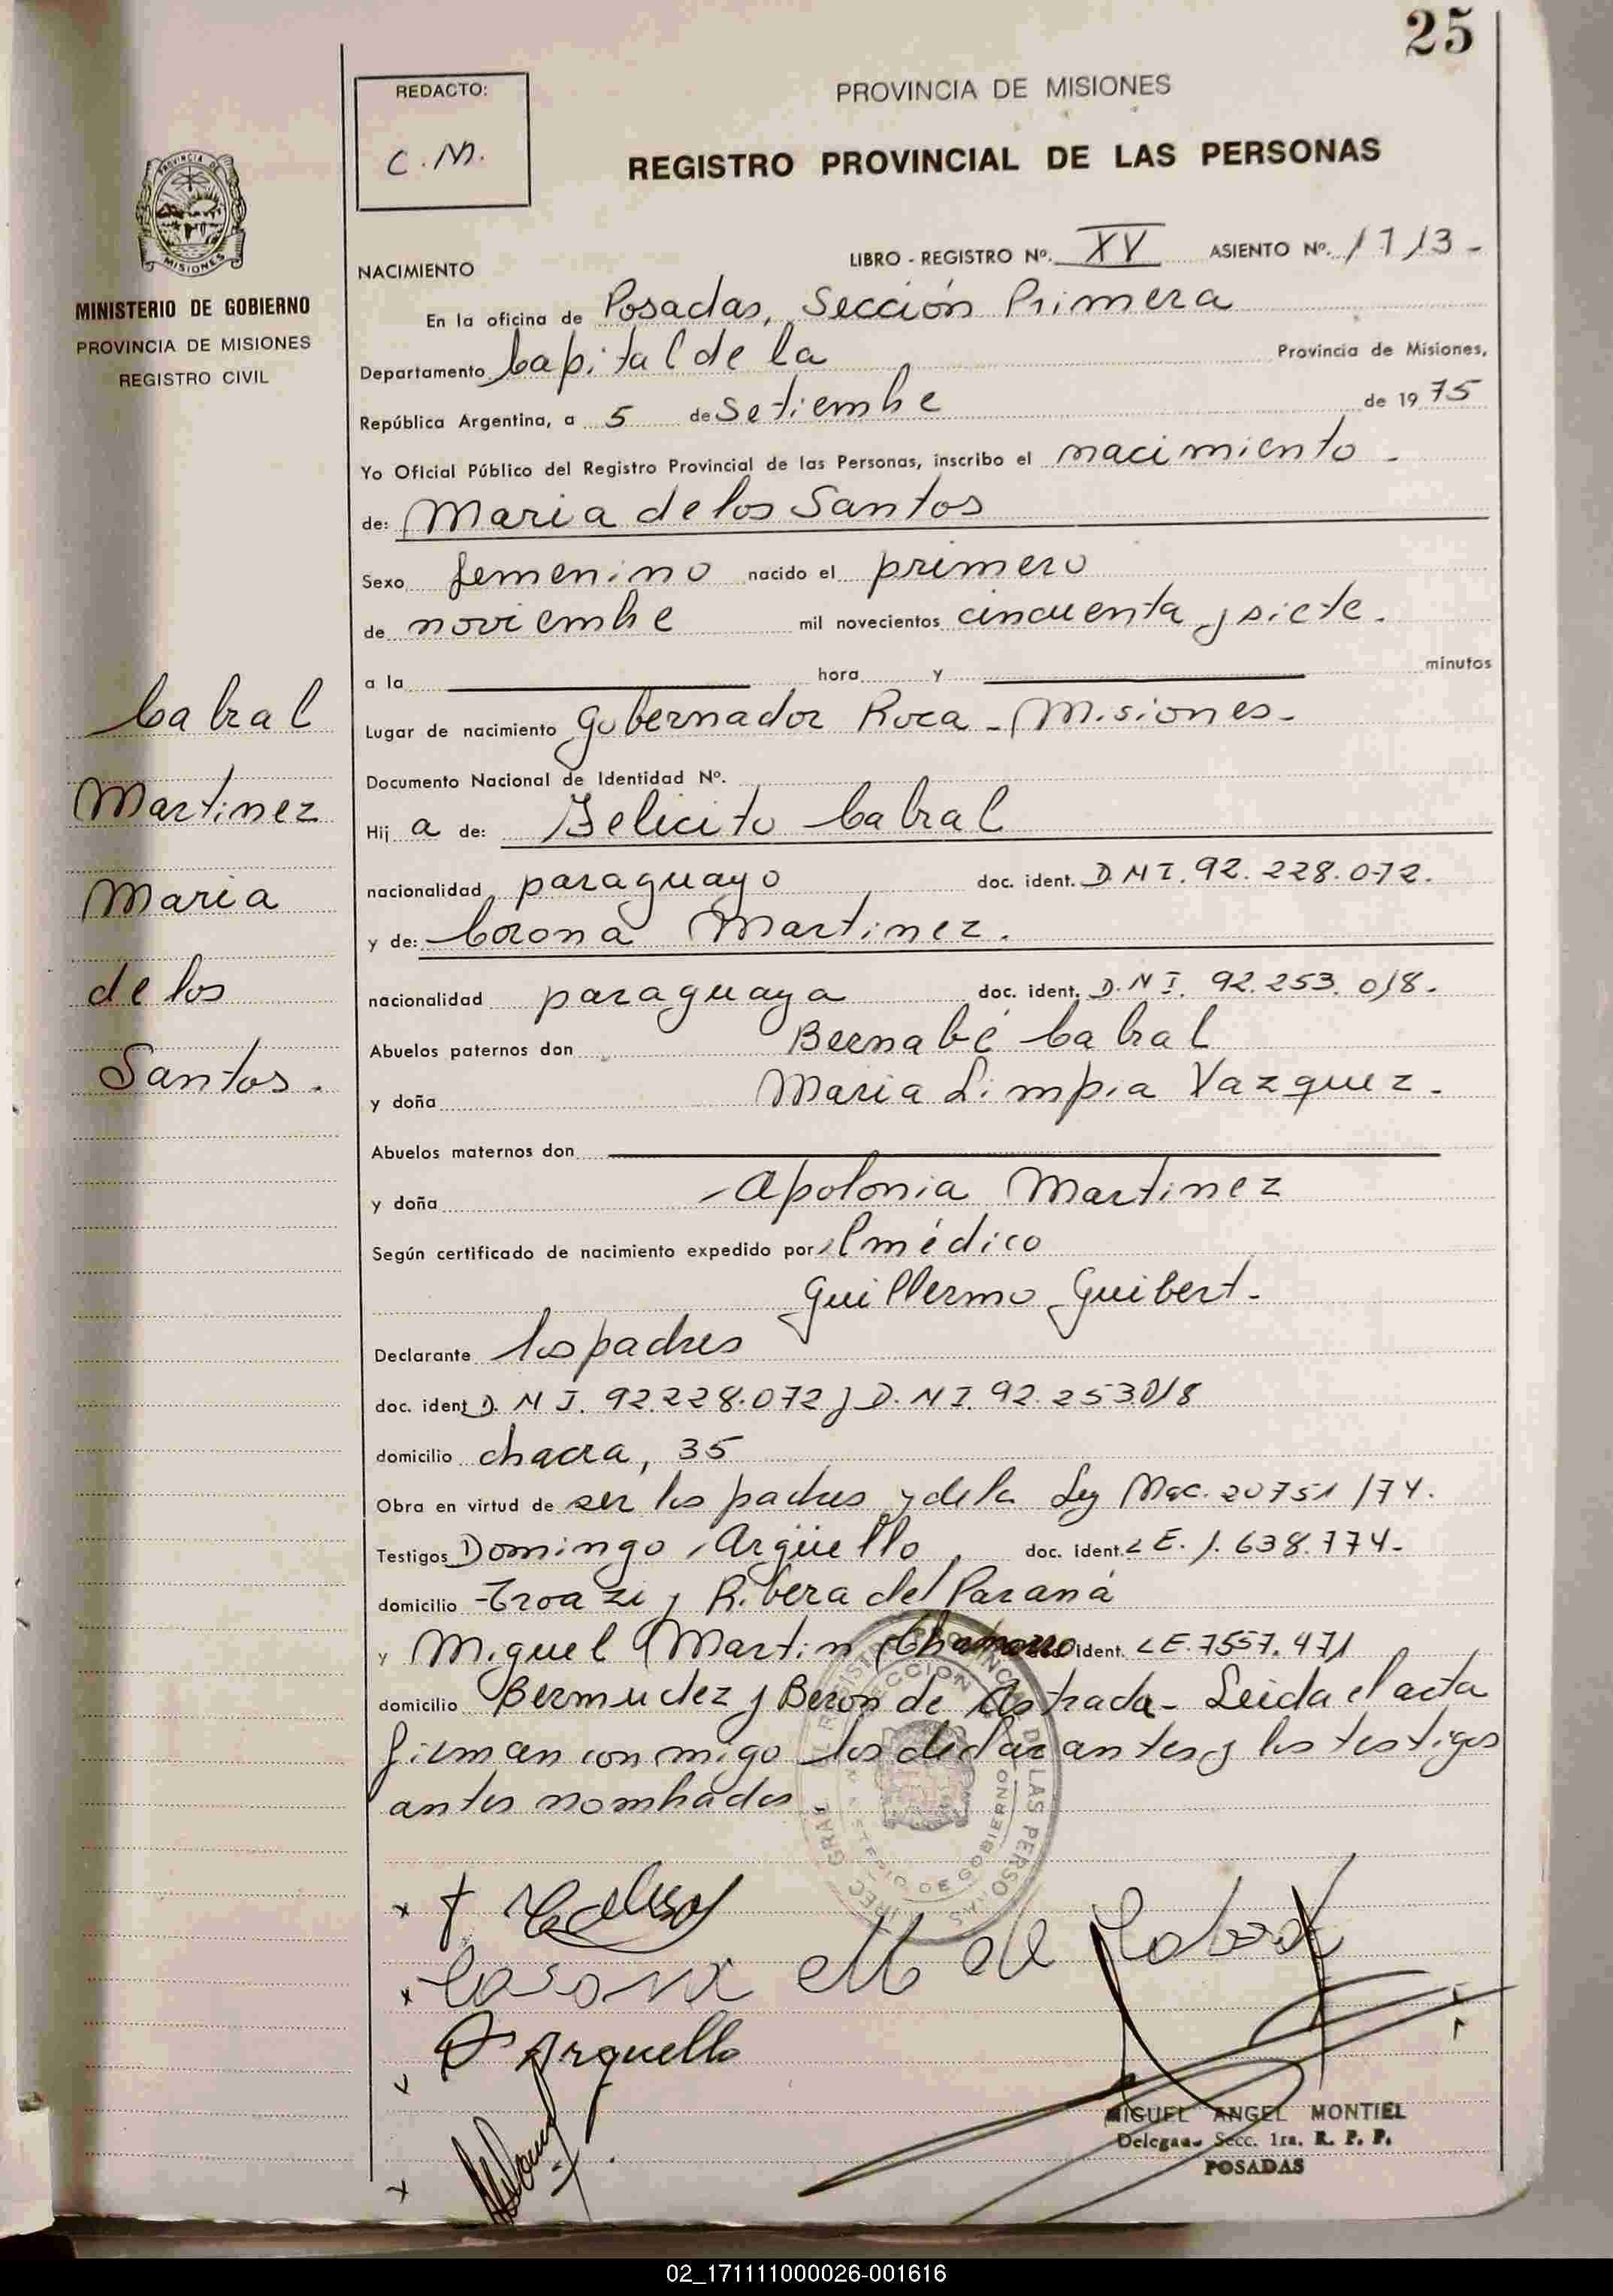 25
REDACTO:
C.M.
PROVINCIA DE MISIONES
REGISTRO PROVINCIAL DE LAS PERSONAS
PROVINCIA DE MISIONES
MINISTERIO DE GOBIERNO
PROVINCIA DE MISIONES
REGISTRO CIVIL
Cabral
Martinez
Maria
de los
Santos.
NACIMIENTO
LIBRO - REGISTRO Nº. XV ASIENTO Nº. 1713-
En la oficina de Posadas, Sección Primera
Departamento Capital de la Provincia de Misiones,
República Argentina, a 5 de Setiembre de 1975
Yo Oficial Público del Registro Provincial de las Personas, inscribo el nacimiento -
de: Maria de los Santos
Sexo femenino nacido el primero
de noviembre mil novecientos cincuenta y siete.
a la hora y minutos
Lugar de nacimiento Gobernador Roca - Misiones-
Documento Nacional de Identidad Nº.
Hij a de: Felicito Cabral
nacionalidad paraguayo doc. ident. D N I. 92. 228. 072.
y de: Corona Martinez.
nacionalidad paraguaya doc. ident. D. N I. 92. 253. 018.
Abuelos paternos don Bernabé Cabral
y doña Maria Limpia Vazquez-
Abuelos maternos don
y doña Apolonia Martinez
Según certificado de nacimiento expedido por el médico
Guillermo Guibert-
Declarante los padres
doc. ident D. N I. 92.228.072 y D. N I. 92. 253018
domicilio chacra, 35
Obra en virtud de ser los padres y de la Ley Nac. 20751/74.
Testigos Domingo Argüello, doc. ident. L E. 1. 638. 774-
domicilio y Ribera del Paraná
y Miguel Martin Chamorro doc. ident. L E. 7557. 471
domicilio Bermudez y Beron de Astrada- Leida el acta
firman conmigo los declarantes y los testigos
antes nombrados
Corona M de Cabral
D Arguello
MIGUEL ANGEL MONTIEL
Delegado Secc. 1ra. R. P. P.
POSADAS
02_171111000026-001616